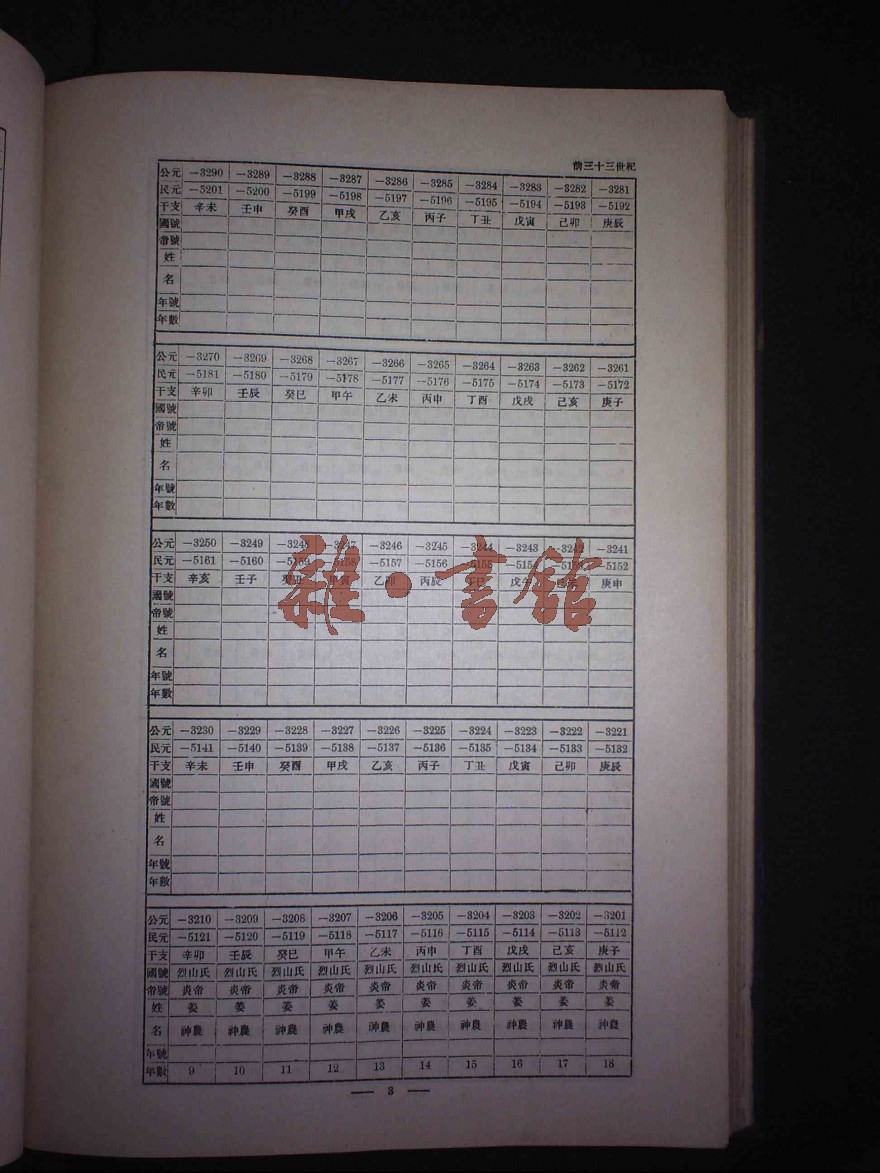 前三十三世紀
公元 —3290 —3289 —3288 —3287 —3286 —3285 —3284 —3283 —3282 —3281
民元 —5201 —5200 —5199 —5198 —5197 —5196 —5195 —5194 —5193 —5192
干支 辛未 壬申 癸酉 甲戌 乙亥 丙子 丁丑 戊寅 己卯 庚辰
國號
帝號
姓
名
年號
年數
公元 —3270 —3269 —3268 —3267 —3266 —3265 —3264 —3263 —3262 —3261
民元 —5181 —5180 —5179 —5178 —5177 —5176 —5175 —5174 —5173 —5172
干支 辛卯 壬辰 癸巳 甲午 乙未 丙申 丁酉 戊戌 己亥 庚子
國號
帝號
姓
名
年號
年數
公元 —3250 —3249 —3248 —3247 —3246 —3245 —3244 —3243 —3242 —3241
民元 —5161 —5160 —5159 —5158 —5157 —5156 —5155 —5154 —5153 —5152
干支 辛亥 壬子 癸丑 甲寅 乙卯 丙辰 丁巳 戊午 己未 庚申
國號
帝號
姓
名
年號
年數
雜·書館
公元 —3230 —3229 —3228 —3227 —3226 —3225 —3224 —3223 —3222 —3221
民元 —5141 —5140 —5139 —5138 —5137 —5136 —5135 —5134 —5133 —5132
干支 辛未 壬申 癸酉 甲戌 乙亥 丙子 丁丑 戊寅 己卯 庚辰
國號
帝號
姓
名
年號
年數
公元 —3210 —3209 —3208 —3207 —3206 —3205 —3204 —3203 —3202 —3201
民元 —5121 —5120 —5119 —5118 —5117 —5116 —5115 —5114 —5113 —5112
干支 辛卯 壬辰 癸巳 甲午 乙未 丙申 丁酉 戊戌 己亥 庚子
國號 烈山氏 烈山氏 烈山氏 烈山氏 烈山氏 烈山氏 烈山氏 烈山氏 烈山氏 烈山氏
帝號 炎帝 炎帝 炎帝 炎帝 炎帝 炎帝 炎帝 炎帝 炎帝 炎帝
姓 姜 姜 姜 姜 姜 姜 姜 姜 姜 姜
名 神農 神農 神農 神農 神農 神農 神農 神農 神農 神農
年號
年數 9 10 11 12 13 14 15 16 17 18
— 3 —